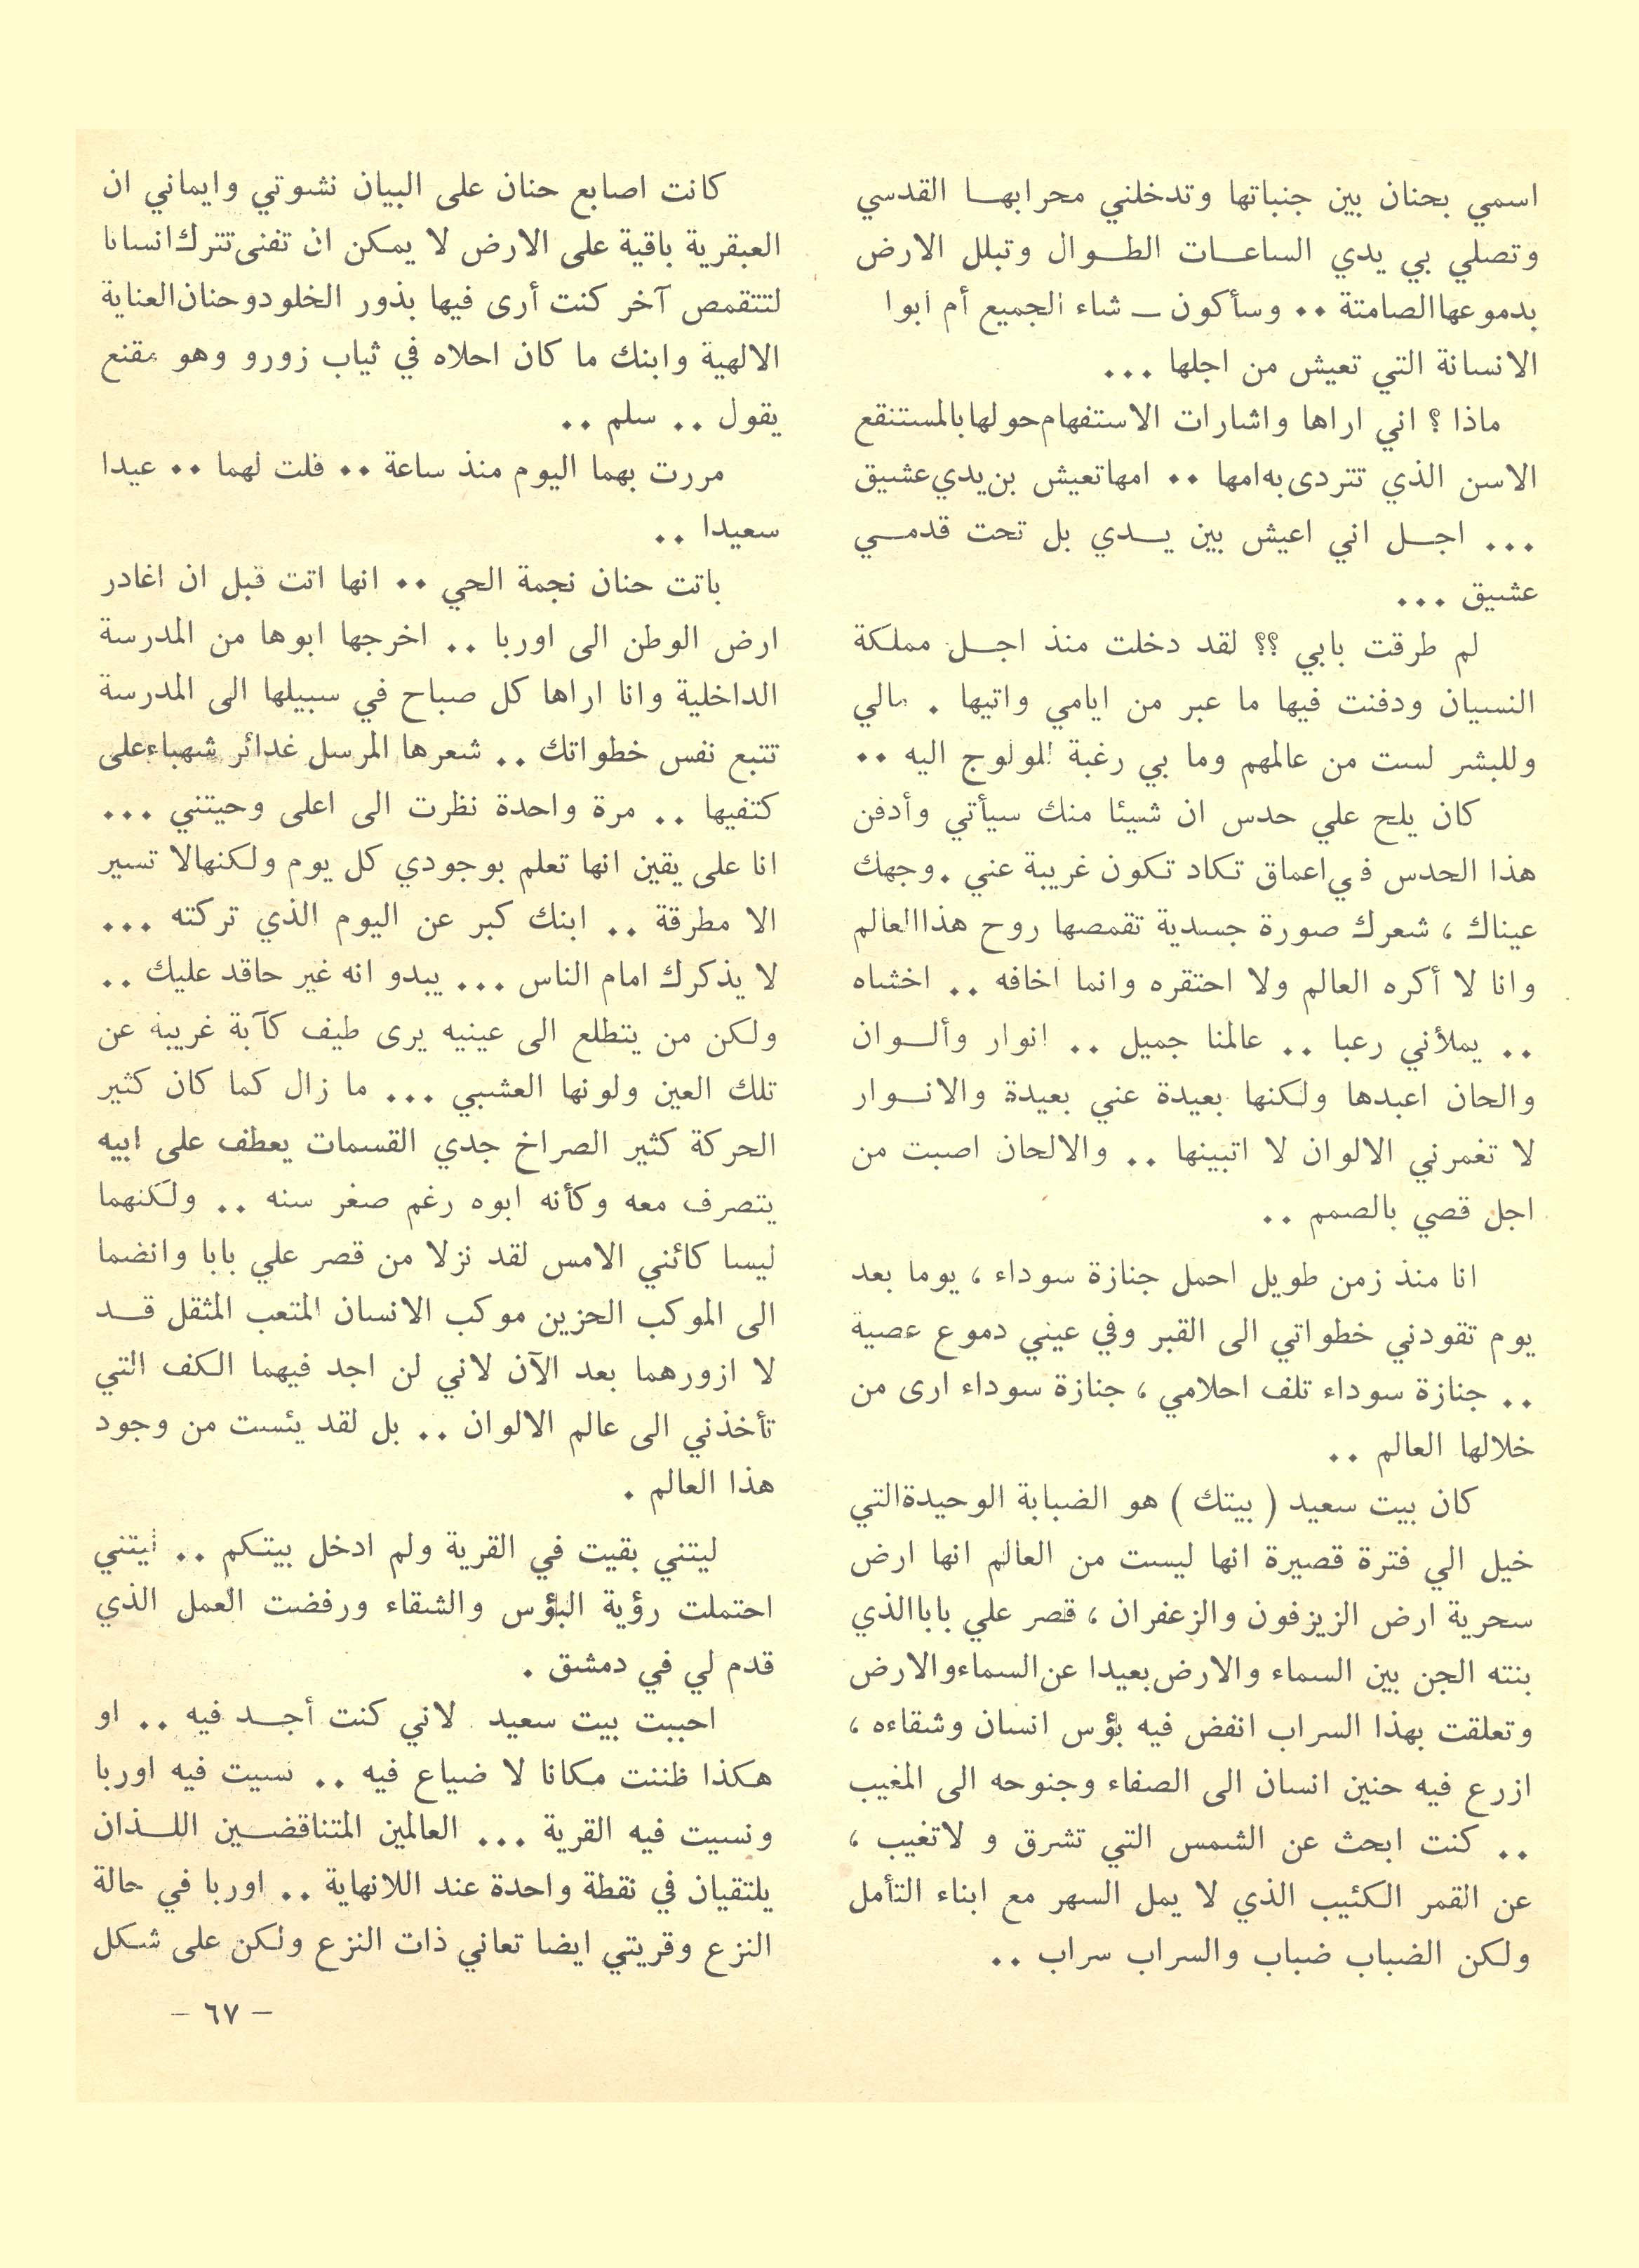 اسمي بحنان بين جنباتها وتدخلني محرابها القدسي
وتصلي بي يدي الساعات الطوال وتبلل الارض
بدموعها الصامتة .. وسأكون ــ شاء الجميع أم ابوا
الانسانة التي تعيش من اجلها ...
ماذا ؟ اني اراها واشارات الاستفهام حولها بالمستنقع
الاسن الذي تتردى به امها .. امها تعيش بن يدي عشيق
... اجل اني اعيش بين يدي بل تحت قدمي
عشيق ...
لم طرقت بابي ؟؟ لقد دخلت منذ اجل مملكة
النسيان ودفنت فيها ما عبر من ايامي واتيها . مالي
وللبشر لست من عالمهم وما بي رغبة للولوج اليه ..
كان يلح علي حدس ان شيئا منك سيأتي وأدفن
هذا الحدس في اعماق تكاد تكون غريبة عني . وجهك
عيناك ، شعرك صورة جسدية تقمصها روح هذا العالم
وانا لا أكره العالم ولا احتقره وانما اخافه .. اخشاه
.. يملأني رعبا .. عالمنا جميل .. انوار وألوان
والحان اعبدها ولكنها بعيدة عني بعيدة والانوار
لا تغمرني الالوان لا اتبينها .. والالحان اصبت من
اجل قصي بالصمم ..
انا منذ زمن طويل احمل جنازة سوداء ، يوما بعد
يوم تقودني خطواتي الى القبر وفي عيني دموع عصية
.. جنازة سوداء تلف احلامي ، جنازة سوداء ارى من
خلالها العالم ..
كان بيت سعيد ( بيتك ) هو الضبابة الوحيدة التي
خيل الي فترة قصيرة انها ليست من العالم انها ارض
سحرية ارض الزيزفون والزعفران ، قصر علي بابا الذي
بنته الجن بين السماء والارض بعيدا عن السماء والارض
وتعلقت بهذا السراب انفض فيه بؤس انسان وشقاءه ،
ازرع فيه حنين انسان الى الصفاء وجنوحه الى المغيب
.. كنت ابحث عن الشمس التي تشرق و لا تغيب ،
عن القمر الكئيب الذي لا يمل السهر مع ابناء التأمل
ولكن الضباب ضباب والسراب سراب ..
كانت اصابع حنان على البيان نشوتي وايماني ان
العبقرية باقية على الارض لا يمكن ان تفنى تترك انسانا
لتتقمص آخر كنت أرى فيها بذور الخلود وحنان العناية
الالهية وابنك ما كان احلاه في ثياب زورو وهو مقنع
يقول .. سلم ..
مررت بهما اليوم منذ ساعة .. قلت لهما .. عيدا
سعيدا ..
باتت حنان نجمة الحي .. انها اتت قبل ان اغادر
ارض الوطن الى اوربا .. اخرجها ابوها من المدرسة
الداخلية وانا اراها كل صباح في سبيلها الى المدرسة
تتبع نفس خطواتك .. شعرها المرسل غدائر شهباء على
كتفيها .. مرة واحدة نظرت الى اعلى وحيتني ...
انا على يقين انها تعلم بوجودي كل يوم ولكنها لا تسير
الا مطرقة .. ابنك كبر عن اليوم الذي تركته ...
لا يذكرك امام الناس ... يبدو انه غير حاقد عليك ..
ولكن من يتطلع الى عينيه يرى طيف كآبة غريبة عن
تلك العين ولونها العشبي ... ما زال كما كان كثير
الحركة كثير الصراخ جدي القسمات يعطف على ابيه
يتصرف معه وكأنه ابوه رغم صغر سنه .. ولكنهما
ليسا كائني الامس لقد نزلا من قصر علي بابا وانضما
الى الموكب الحزين موكب الانسان المتعب المثقل قد
لا ازورهما بعد الآن لاني لن اجد فيهما الكف التي
تأخذني الى عالم الالوان .. بل لقد يئست من وجود
هذا العالم .
ليتني بقيت في القرية ولم ادخل بيتكم .. ليتني
احتملت رؤية البؤس والشقاء ورفضت العمل الذي
قدم لي في دمشق .
احببت بيت سعيد لاني كنت أجد فيه .. او
هكذا ظننت مكانا لا ضياع فيه .. نسيت فيه اوربا
ونسيت فيه القرية ... العالمين المتناقضين اللذان
يلتقيان في نقطة واحدة عند اللانهاية .. اوربا في حالة
النزع وقريتي ايضا تعاني ذات النزع ولكن على شكل
– ٦٧ –